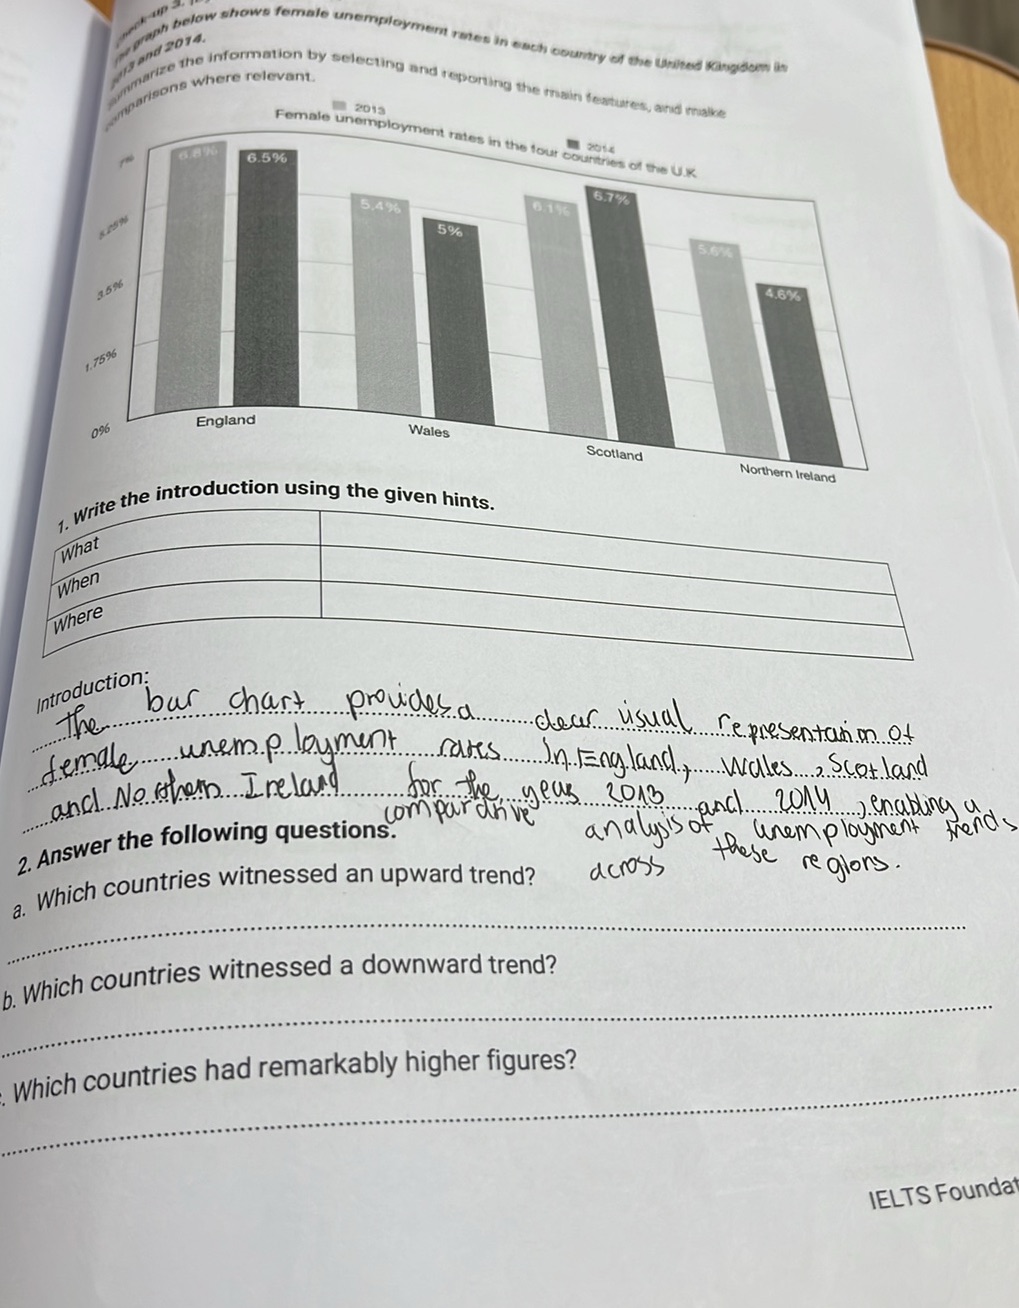 check-up 3.
The graph below shows female unemployment rates in each country of the United Kingdom in
2013 and 2014.
Summarize the information by selecting and reporting the main features, and make
comparisons where relevant.
2013
2014
Female unemployment rates in the four countries of the U.K
7%
5.25%
3.5%
1.75%
0%
6.8%
6.5%
5.4%
5%
6.1%
6.7%
5.6%
4.6%
England
Wales
Scotland
Northern Ireland
1. Write the introduction using the given hints.
What
When
Where
Introduction:
The bar chart provides a clear visual representation of
female unemployment rates in England, Wales, Scotland
and Northern Ireland for the years 2013 and 2014, enabling a
comparative analysis of unemployment trends
across these regions.
2. Answer the following questions.
a. Which countries witnessed an upward trend?
b. Which countries witnessed a downward trend?
. Which countries had remarkably higher figures?
IELTS Foundat